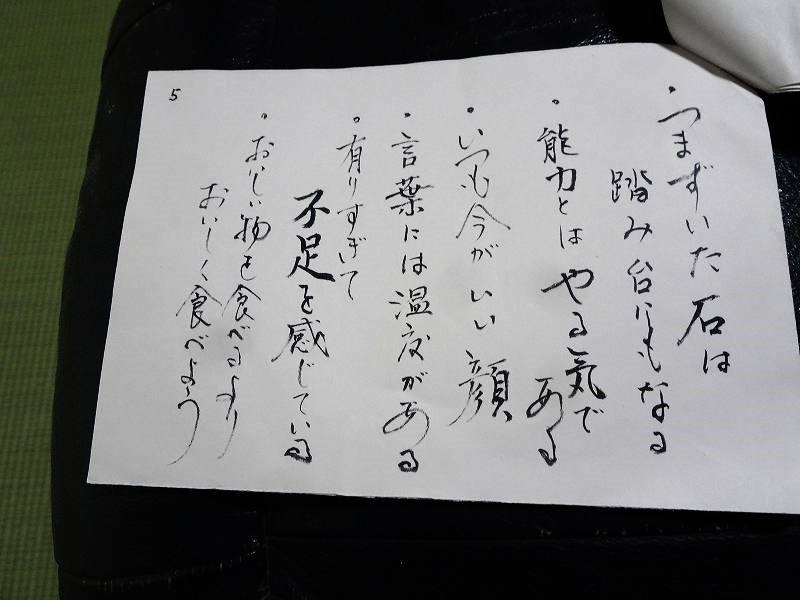 ・つまずいた石は
踏み台にもなる
・能力とはやる気で
ある
・いつも今がいい顔
・言葉には温度がある
・有りすぎて
不足を感じている
・おいしい物を食べるより
おいしく食べよう
5